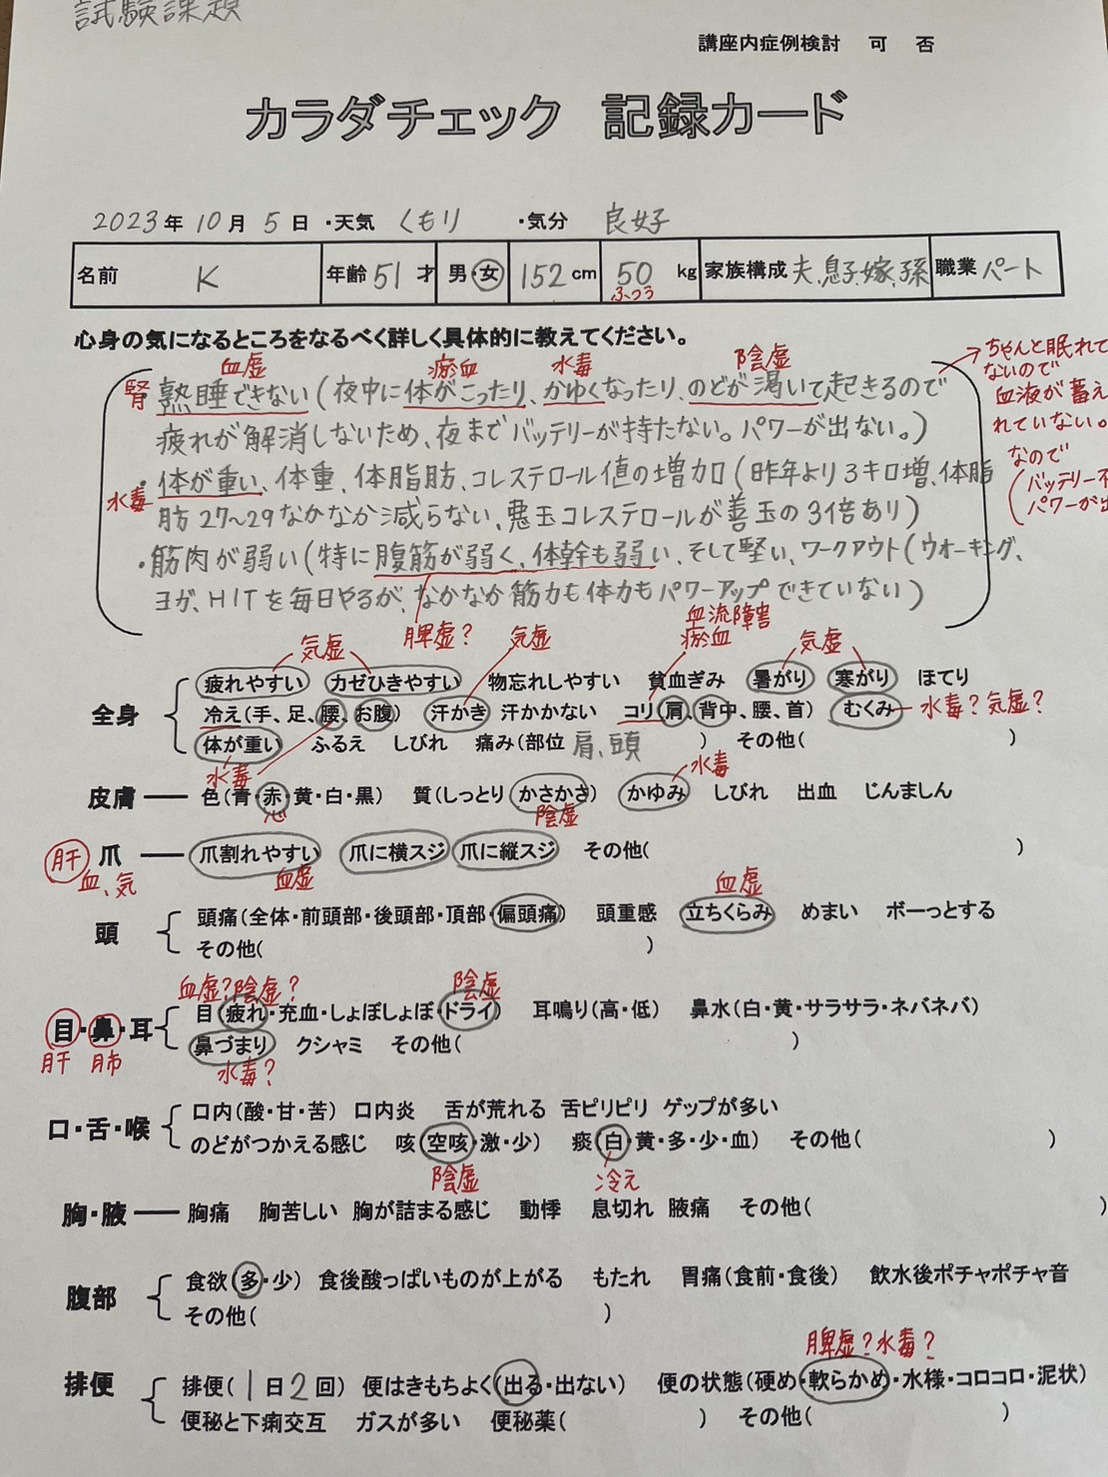 試験課題
講座内症例検討 可 否
カラダチェック 記録カード
2023年 10月 5日 ・天気 くもり ・気分 良好
名前 K 年齢 51 才 男・女 152 cm 50 kg 家族構成 夫、息子、嫁、孫 職業 パート
ふつう
心身の気になるところをなるべく詳しく具体的に教えてください。
血虚 瘀血 水毒 陰虚
腎
・熟睡できない(夜中に体がこったり、かゆくなったり、のどが渇いて起きるので
疲れが解消しないため、夜までバッテリーが持たない。パワーが出ない。)
ちゃんと眠れて
ないので
血液が蓄え
れていない。
なので
(バッテリー不
パワーが出
水毒
・体が重い、体重、体脂肪、コレステロール値の増加(昨年より3キロ増、体脂
肪27〜29なかなか減らない、悪玉コレステロールが善玉の3倍あり)
・筋肉が弱い(特に腹筋が弱く、体幹も弱い、そして堅い、ワークアウト(ウオーキング、
ヨガ、HITを毎日やるが、なかなか筋力も体力もパワーアップできていない)
脾虚?
気虚 気虚 血流障害 気虚
瘀血
全身 疲れやすい カゼひきやすい 物忘れしやすい 貧血ぎみ 暑がり 寒がり ほてり
冷え(手、足、腰、お腹) 汗かき 汗かかない コリ(肩、背中、腰、首) むくみ 水毒?気虚?
体が重い ふるえ しびれ 痛み(部位 肩、頭 ) その他( )
水毒 水毒
皮膚 ― 色(青・赤・黄・白・黒) 質(しっとり・かさかさ) かゆみ しびれ 出血 じんましん
心 陰虚
肝 爪 ― 爪割れやすい 爪に横スジ 爪に縦スジ その他( )
血、気 血虚 血虚
頭 頭痛(全体・前頭部・後頭部・頂部・偏頭痛) 頭重感 立ちくらみ めまい ボーっとする
その他( )
血虚?陰虚? 陰虚
目・鼻・耳 目(疲れ・充血・しょぼしょぼ・ドライ) 耳鳴り(高・低) 鼻水(白・黄・サラサラ・ネバネバ)
鼻づまり クシャミ その他( )
肝 肺 水毒?
口・舌・喉 口内(酸・甘・苦) 口内炎 舌が荒れる 舌ピリピリ ゲップが多い
のどがつかえる感じ 咳(空咳・激・少) 痰(白・黄・多・少・血) その他( )
陰虚 冷え
胸・腋 ― 胸痛 胸苦しい 胸が詰まる感じ 動悸 息切れ 腋痛 その他( )
腹部 食欲(多・少) 食後酸っぱいものが上がる もたれ 胃痛(食前・食後) 飲水後ポチャポチャ音
その他( )
脾虚?水毒?
排便 排便(1日2回) 便はきもちよく(出る・出ない) 便の状態(硬め・軟らかめ・水様・コロコロ・泥状)
便秘と下痢交互 ガスが多い 便秘薬( ) その他( )